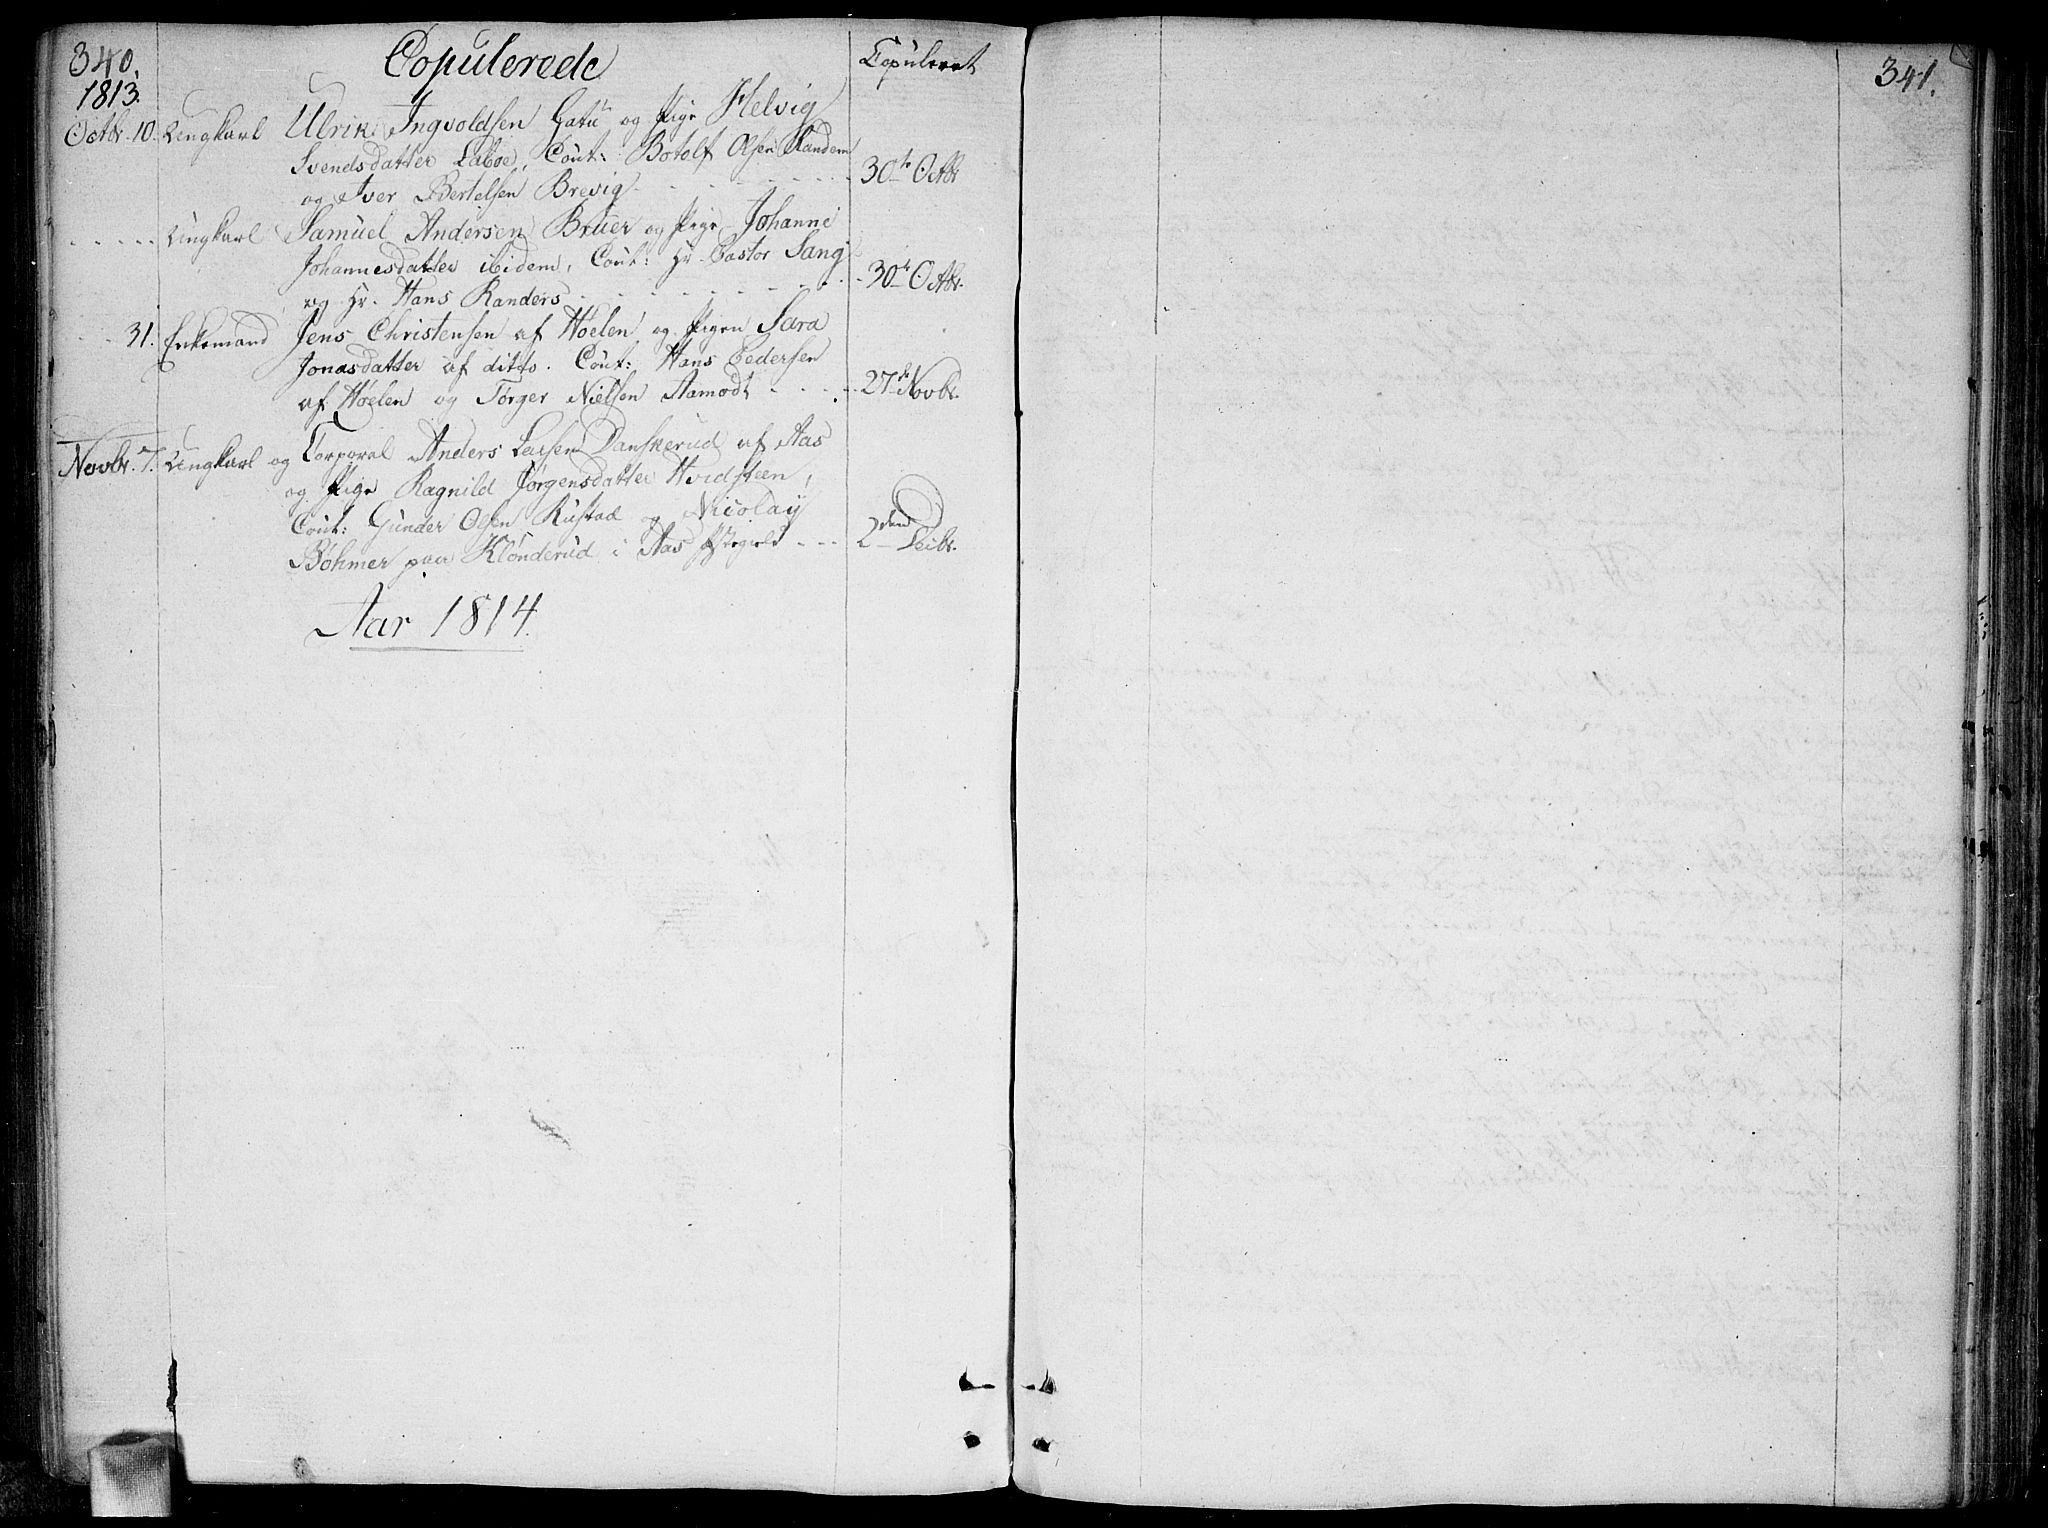 340.
Copulerede
Copuleret
1813.
Octbr. 10. Ungkarl Ulrik Ingvoldsen Gatu og Pige Helvig
Svendsdatter Laboe, Cout: Botolf Olsen Randem
og Iver Bertelsen Brevig 30te Octbr
Ungkarl Samuel Andersen Bruer og Pige Johanne
Johannesdatter ibidem, Cout: Hr. Pastor Sang
og Hr. Hans Randers 30te Octbr.
31. Enkemand Jens Christensen af Høelen og Pigen Sara
Jonasdatter af ditto. Cout: Hans Pedersen
af Høelen og Tørger Nielsen Aamodt 27de Novbr.
Novbr. 7. Ungkarl og Corporal Anders Danskerud af Aas
og Pige Ragnild Jørgensdatter Hvidsteen,
Cout: Gunder Olsen Rustad og Nicolay
Bøhmer paa Klønderud i Aas 2den
Aar 1814.
341.